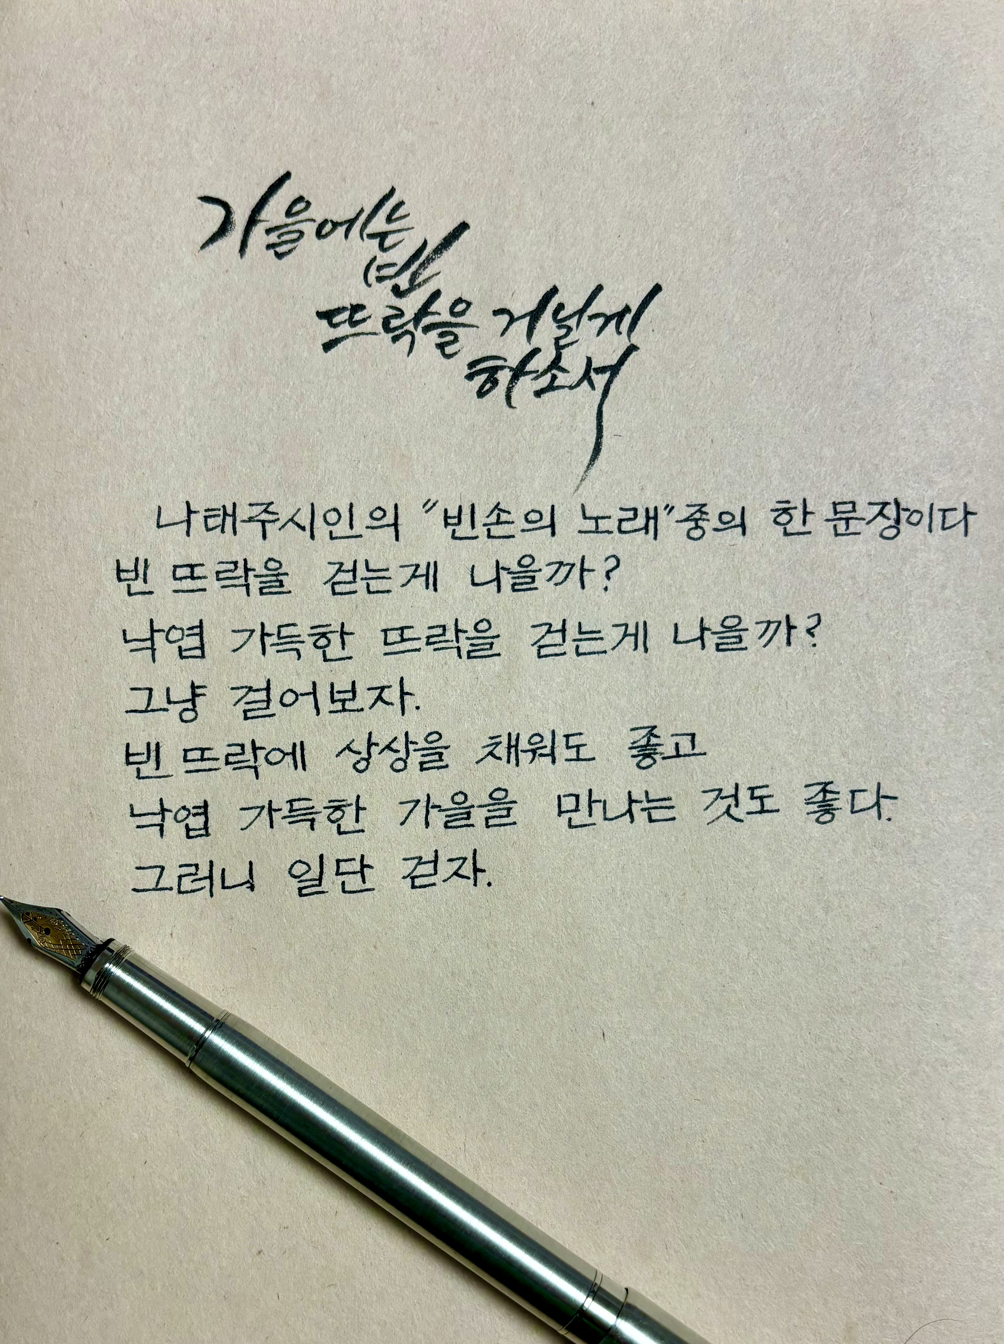 가을에는
빈
뜨락을 거닐게
하소서
나태주시인의 "빈손의 노래"중의 한 문장이다
빈 뜨락을 걷는게 나을까?
낙엽 가득한 뜨락을 걷는게 나을까?
그냥 걸어보자.
빈 뜨락에 상상을 채워도 좋고
낙엽 가득한 가을을 만나는 것도 좋다.
그러니 일단 걷자.